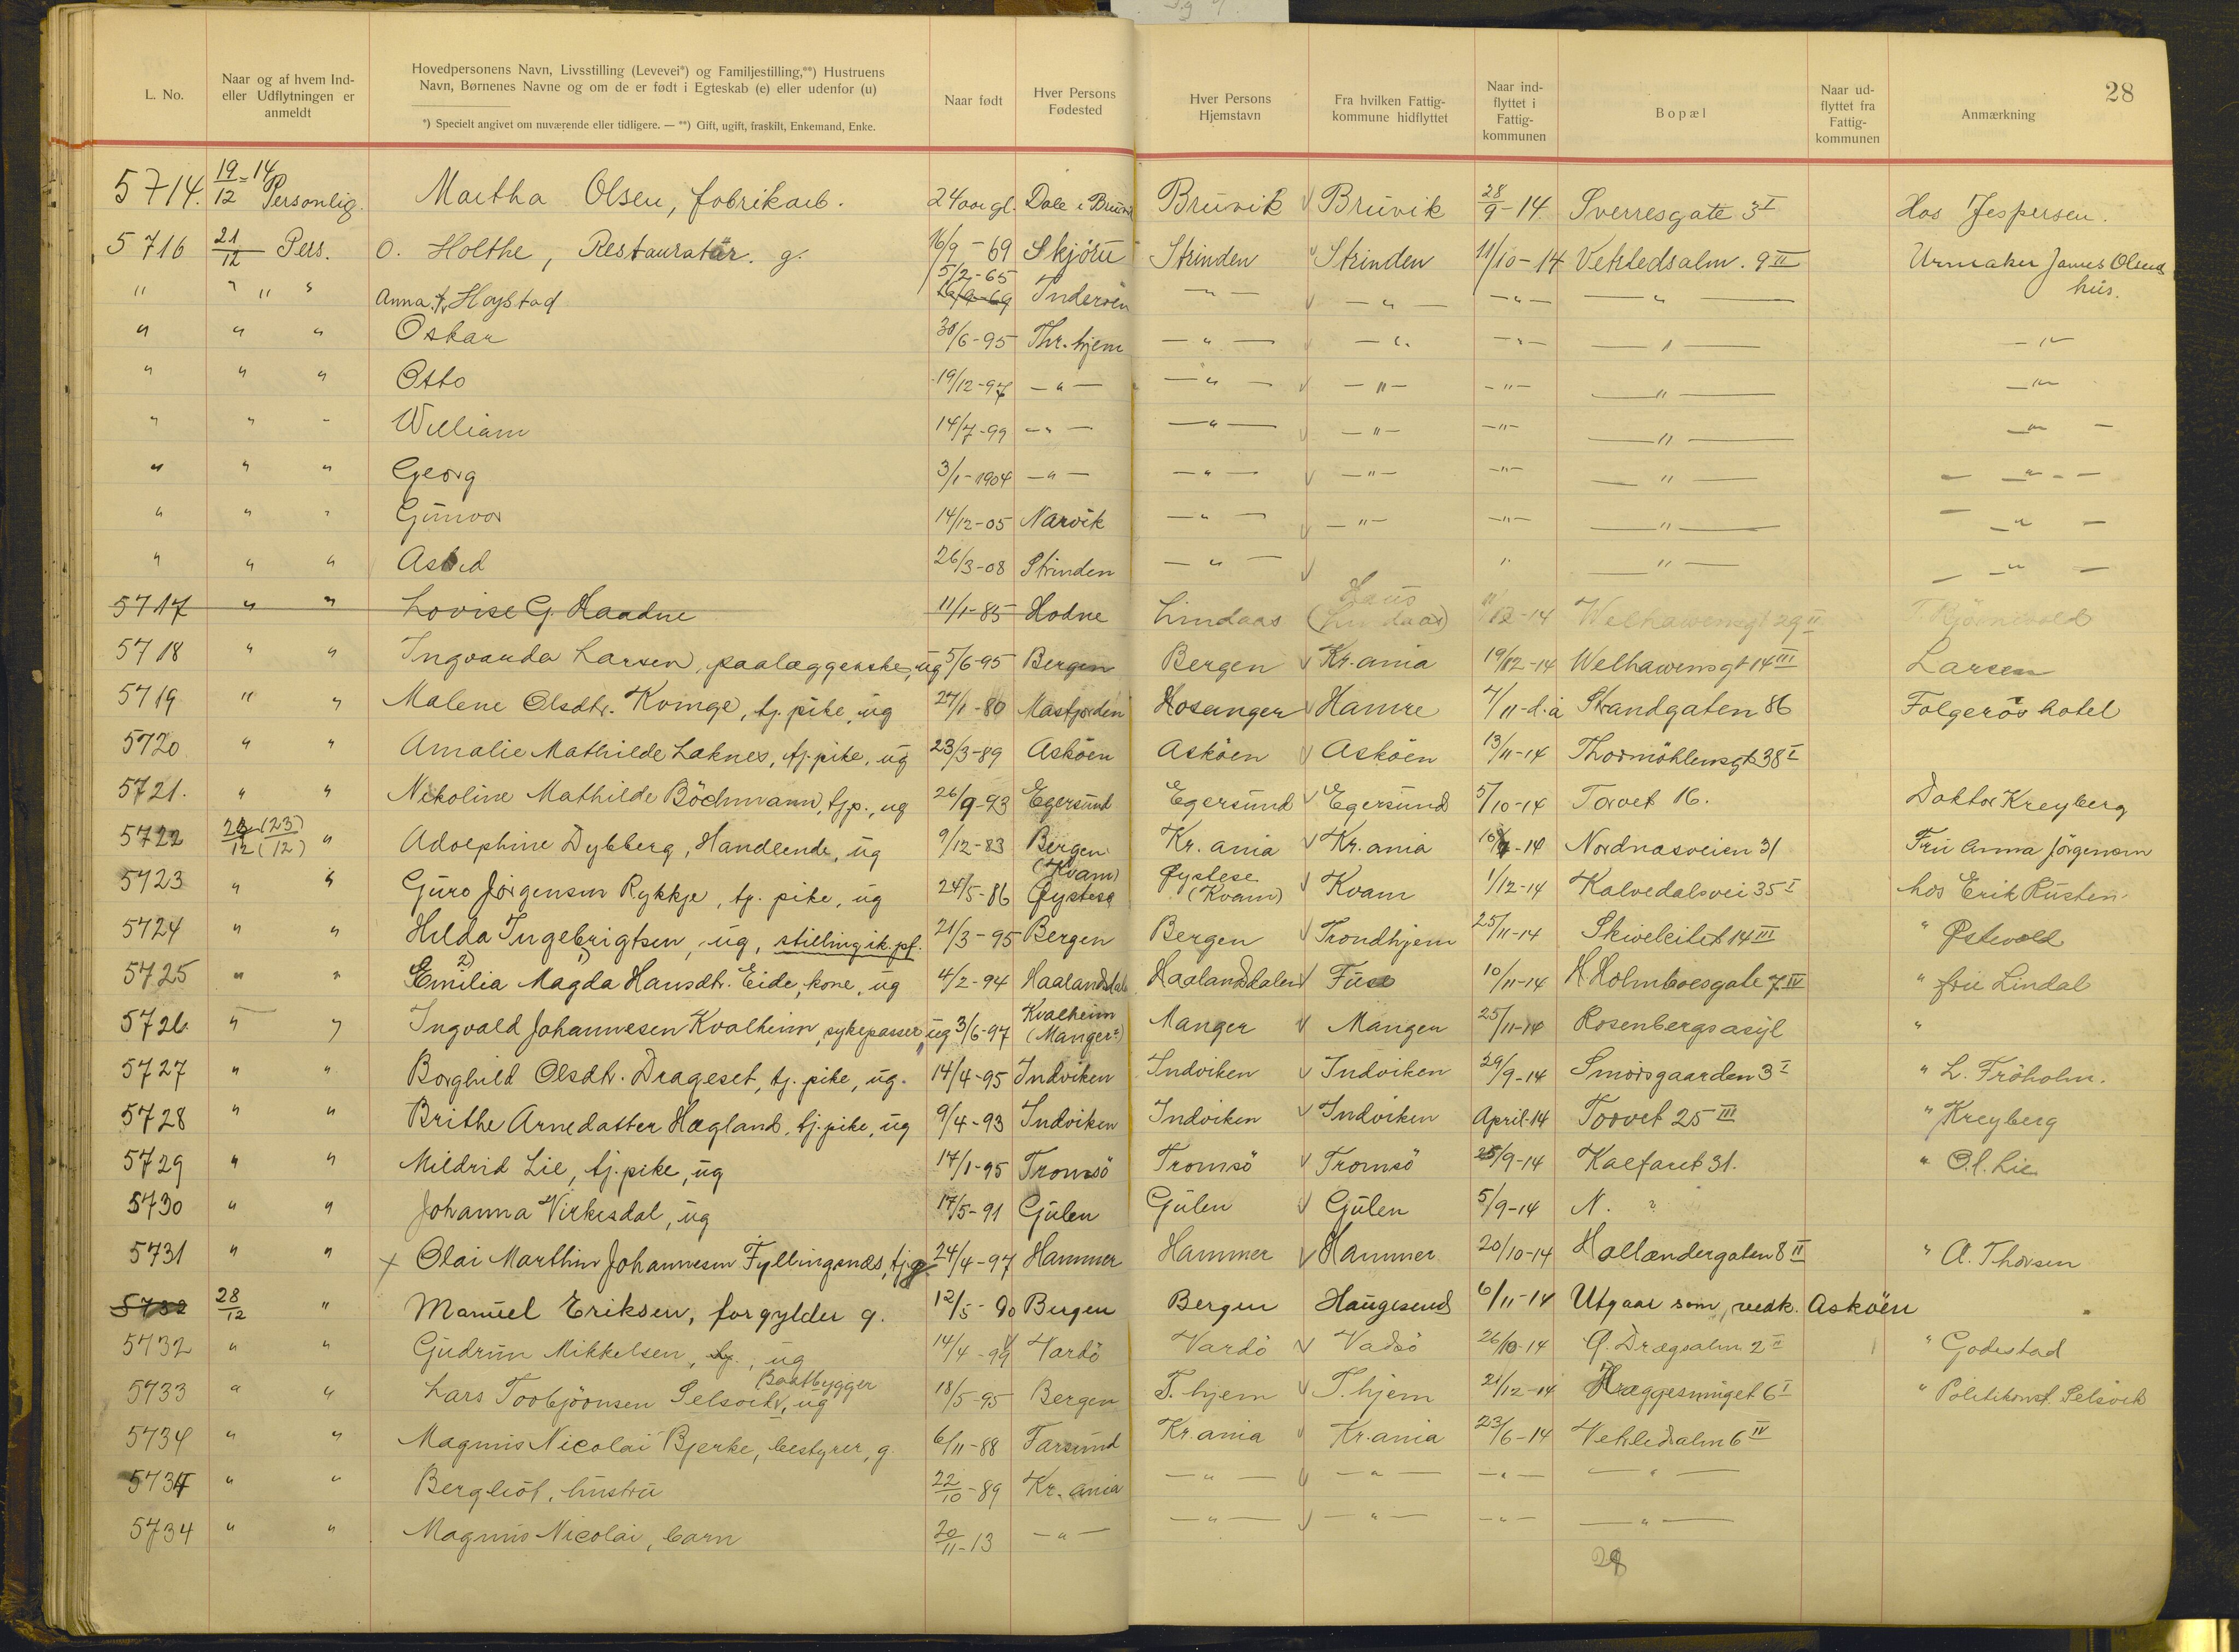 28
L. No. | Naar og af hvem Ind- eller Udflytningen er anmeldt | Hovedpersonens Navn, Livsstilling (Levevei*) og Familjestilling,**) Hustruens Navn, Børnenes Navne og om de er født i Egteskab (e) eller udenfor (u) *) Specielt angivet om nuværende eller tidligere. — **) Gift, ugift, fraskilt, Enkemand, Enke. | Naar født | Hver Persons Fødested | Hver Persons Hjemstavn | Fra hvilken Fattig- kommune hidflyttet | Naar ind- flyttet i Fattig- kommunen | Bopæl | Naar ud- flyttet fra Fattig- kommunen | Anmærkning
5714. 19/12-14 Personlig. Martha Olsen, fabrikarb. 24 aar gl. Dale i Bruvik Bruvik √ Bruvik 28/9-14. Sverresgate 3 I Hos Jespersen.
5716 21/12 Pers. O. Holthe, Restauratør. g. 16/9-69 Skjörn Strinden √ Strinden 11/10-14 Vetrledsalm. 9 II Urmaker James Olsens hus.
" " " " Anna f. Hoystad 5/2-65 16/9-69 Inderöen -"- √ -"- -"- -"-
" " " Oskar 30/6-95 Thr.hjem -"- √ -"- -"- -"- -"-
" " " Otto 19/12-97 -"- -"- √ -"- -"- -"- -"-
" " " William 14/7-99 -"- -"- √ -"- -"- -"- -"-
" " " Georg 3/1-1904 -"- -"- √ -"- -"- -"- -"-
" " " Gunvor 14/12-05 Narvik -"- √ -"- -"- -"- -"-
" " " Astrid 26/3-08 Strinden -"- √ " -"- -"-
5717 " " Lovise G. Haadne 11/1-85 Hodne Lindaas Haus (Lindaas) 11/12-14 Welhavensgt 29 II
5718 " " Ingvanda Larsen, paalæggerske, ug 5/6-95 Bergen Bergen √ Kr.ania 19/12-14 Welhavensgt 14 III Larsen
5719 " " Malene Olsdtr. Kvinge, tj.pike, ug 27/1-80 Masfjorden Hosanger √ Hamre 4/11-d.a Strandgaten 86 Folgerös hotel
5720 " " Amalie Mathilde Laknes, tj.pike, ug 23/3-89 Asköen Asköen √ Asköen 13/11-14 Thormöhlensgt. 38 I
5721. " " Nikoline Mathilde Böchmann, tjp., ug 26/9-93 Egersund Egersund √ Egersund 5/10-14 Torvet 16. Doktor Kreyberg
5722 (23/12) " Adolphine Dybberg, Handlende, ug 9/12-83 Bergen Kr.ania √ Kr.ania Nordnæsveien 31 Fru Anna Jörgensen
5723 " " Guro Jörgensen Rykkje, tj. pike, ug 24/5-86 (Kvam) Øystese Øystese (Kvam) √ Kvam 1/12-14 Kalvedalsvei 35 I hos Erik Rusten
5724 " " Hilda Ingebrigtsen, ug, stilling ik. pf. 21/3-95 Bergen Bergen √ Trondhjem 25/11-14 Skivebilet 14 III " Østevold
5725 " " Emilia 2) Magda 1) Hansdtr. Eide, kone, ug 4/2-94 Haalandsdal Haalandsdalen √ Fuse 10/11-14 H Holmboesgate 7 IV " fru Lindal
5726 " " Ingvald Johannesen Kvalheim, sykepasser, ug 3/6-97 Kvalheim (Manger?) Manger √ Manger 25/11-14 Rosenbergsasyl "
5727 " " Borghild Olsdtr. Drageset, tj. pike, ug. 14/4-95 Indviken Indviken √ Indviken 29/9-14 Smörsgaarden 3 I " L. Fröholm.
5728 " " Brithe Arnedatter Hægland, tj.pike, ug 9/4-93 Indviken Indviken √ Indviken April-14 Torvet 25 III " Kreyberg
5729 " " Mildrid Lie, tj.pike, ug 17/1-95 Tromsö Tromsö √ Tromsö 25/9-14 Kalfaret 31. " O.l. Lie
5730 " " Johanna Virkesdal, ug 17/5-91 Gulen Gulen √ Gulen 5/9-14 N. ?
5731 " " × Olai Marthin Johannesen Fyllingsnæs, tj.g. 24/4-97 Hammer Hammer √ Hammer 20/10-14 Hollændergaten 8 II " A. Thorsen
5732 28/12 " Manuel Eriksen, forgylder g. 12/5-90 Bergen Bergen Haugesund 6/11-14 Utgaar som vedk. Asköen "
5732 " " Gudrun Mikkelsen, tj., ug 14/4-94 Vardö Vardö √ Vadsö 26/10-14 Ø. Drægsalm. 2 II " Godestad
5733 " " Lars Torbjörnsen Selsvik, ug Baatbygger 18/5-95 Bergen T.hjem √ T.hjem 21/12-14 Kroggesmuget 6 I " Politikonst. Selsvik
5734 " " Magnus Nicolai Bjerke, bestyrer, g. 6/11-88 Farsund Kr.ania √ Kr.ania 23/6-14 Vetrledsalm 6 IV
5734 " " Bergliot, hustru 22/10-89 Kr.ania -"- √ -"- -"- -"-
5734 " " Magnus Nicolai, barn 20/11-13 -"- -"- √ -"- -"- -"-
28